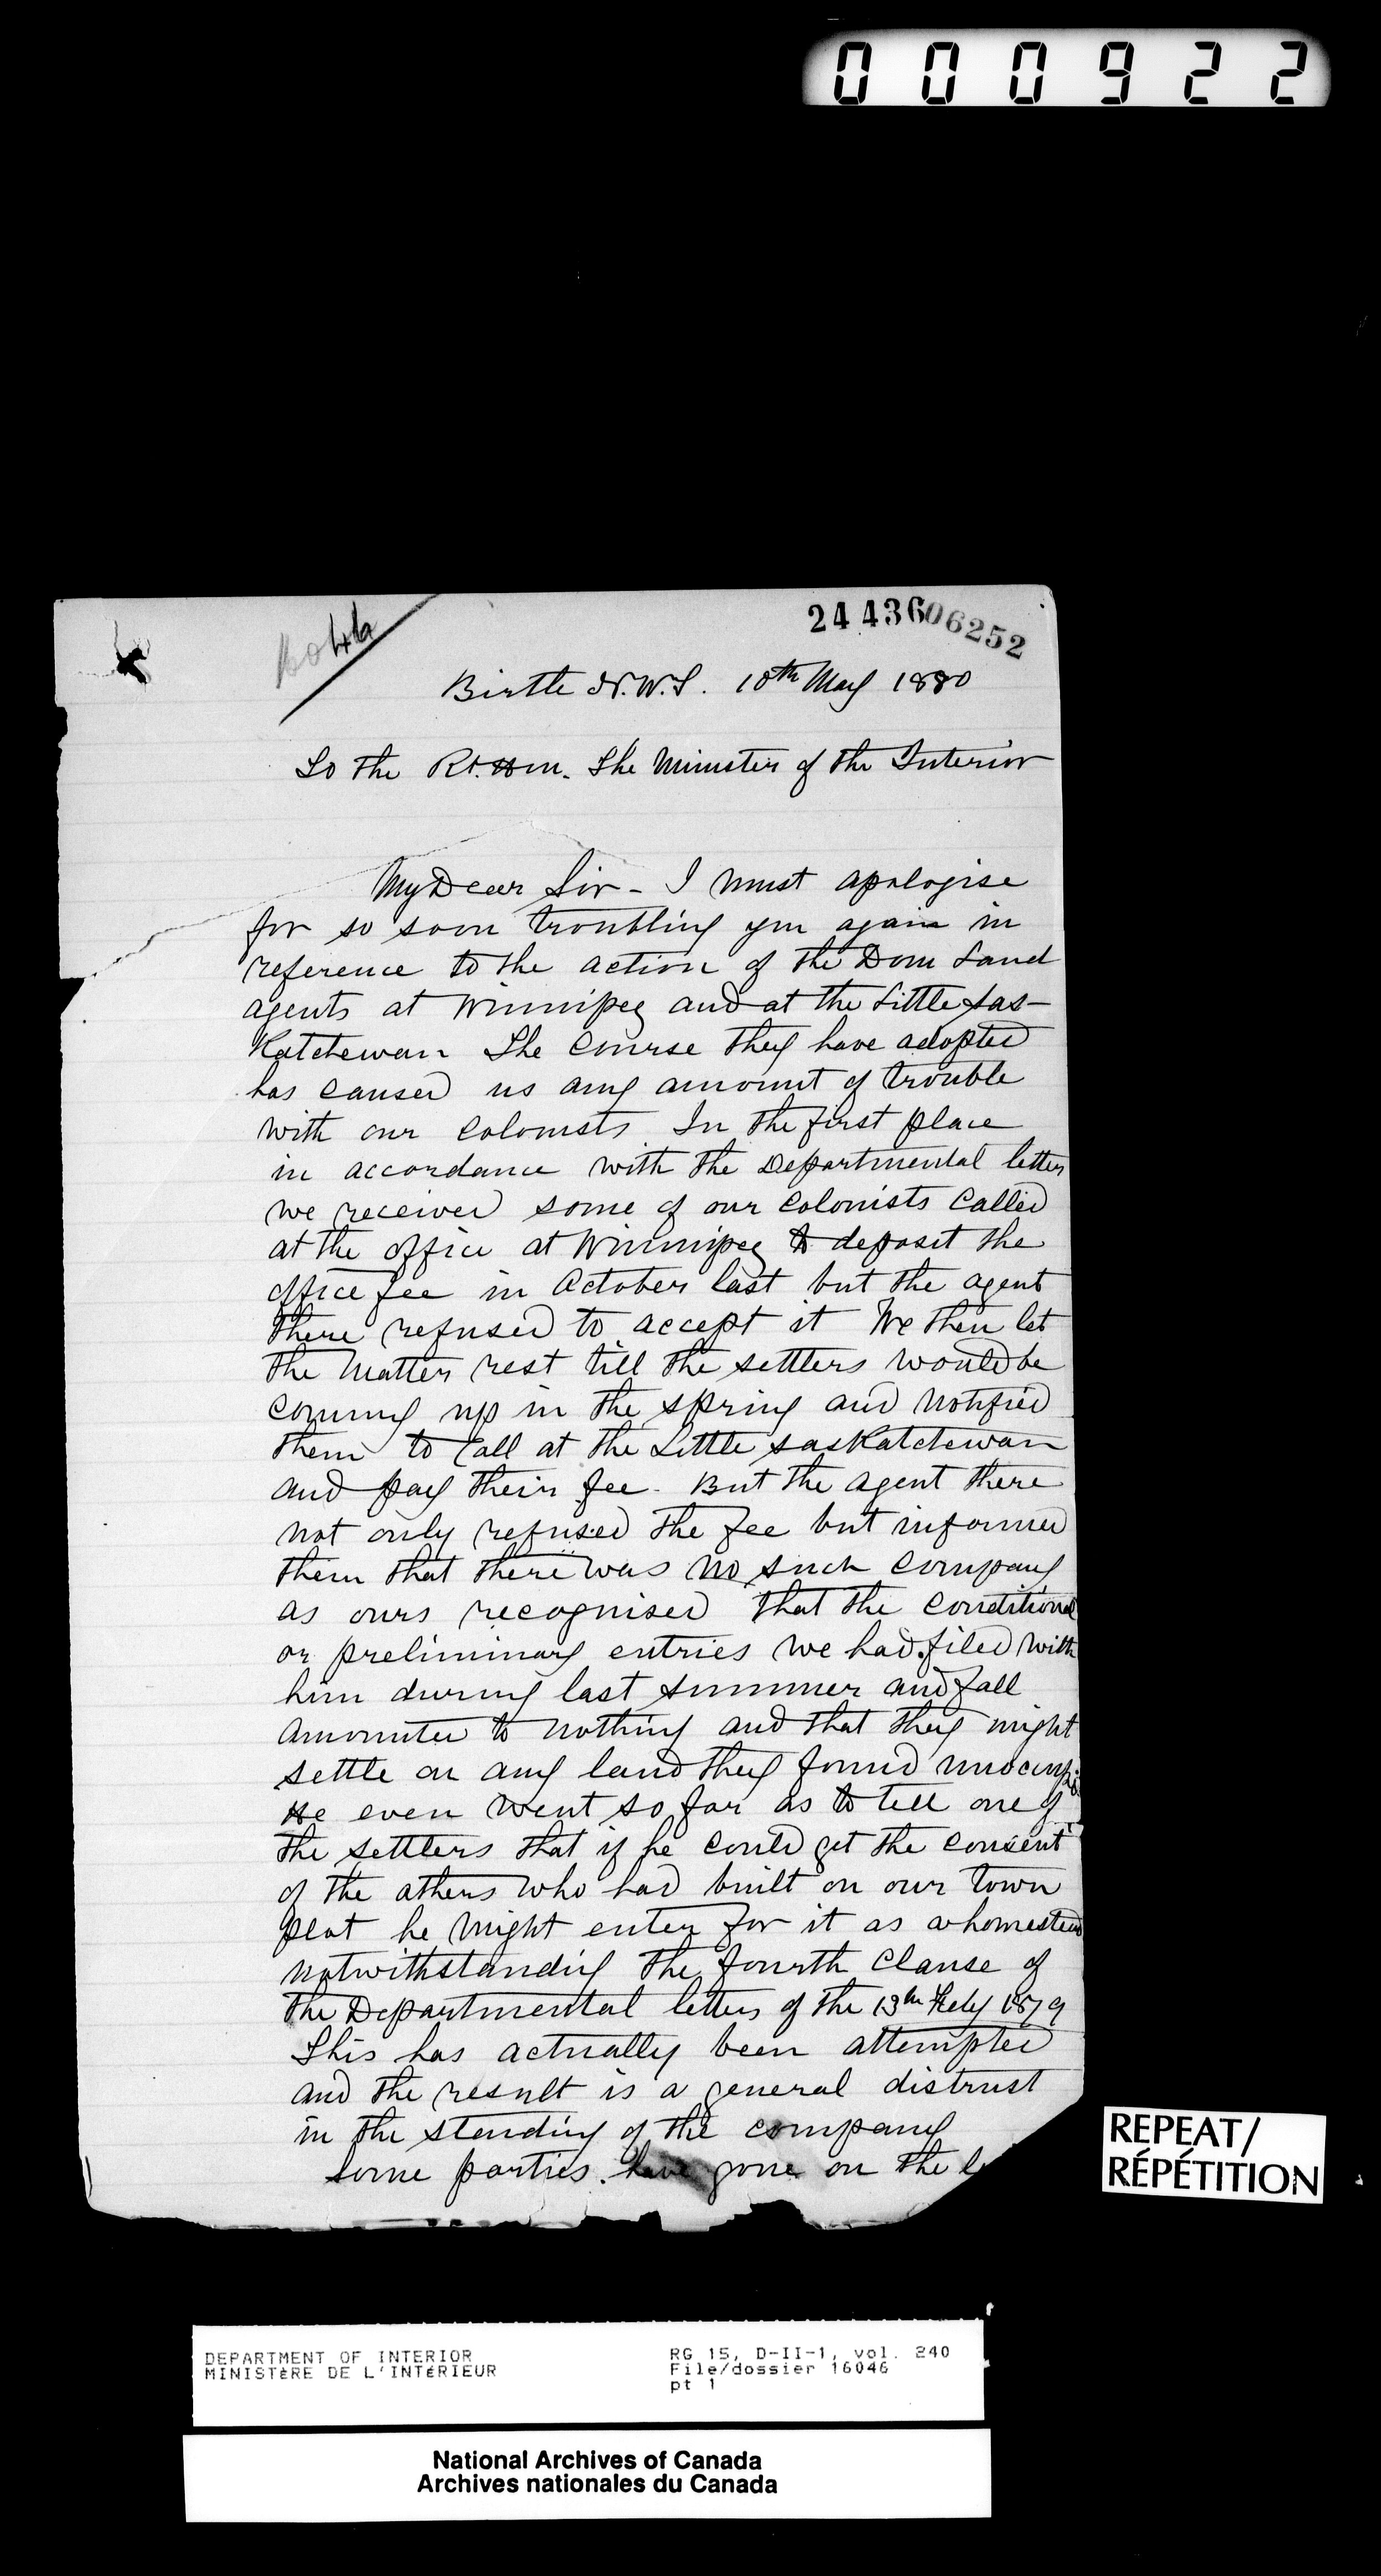 000922
2443606252
Birtle N.W.T. 10th May 1880
To the Rt. Hon. The Minister of the Interior
My Dear Sir - I must apologise
for so soon troubling you again in
reference to the action of the Dom Land
agents at Winnipeg and at the Little Sas-
katchewan The course they have adopted
has caused us any amount of trouble
with our colonists In the first place
in accordance with the Departmental letter
we received some of our colonists called
at the office at Winnipeg to deposit the
office fee in October last but the agent
there refused to accept it We then let
the matter rest till the settlers would be
coming up in the spring and notified
them to call at the Little Saskatchewan
and pay their fee. But the agent there
not only refused the fee but informed
them that there was no such company
as ours recognised that the conditional
or preliminary entries we had filed with
him during last summer and fall
amounted to nothing and that they might
settle on any land they found unoccupied
He even went so far as to tell one of
the settlers that if he could get the consent
of the others who had built on our town
plot he might enter for it as a homestead
notwithstanding the fourth clause of
the Departmental letter of the 13th 1879
This has actually been attempted
and the result is a general distrust
in the standing of the company
Some parties have gone on the
REPEAT/
RÉPÉTITION
DEPARTMENT OF INTERIOR
MINISTÈRE DE L'INTÉRIEUR
RG 15, D-II-1, vol. 240
File/dossier 16046
pt 1
National Archives of Canada
Archives nationales du Canada